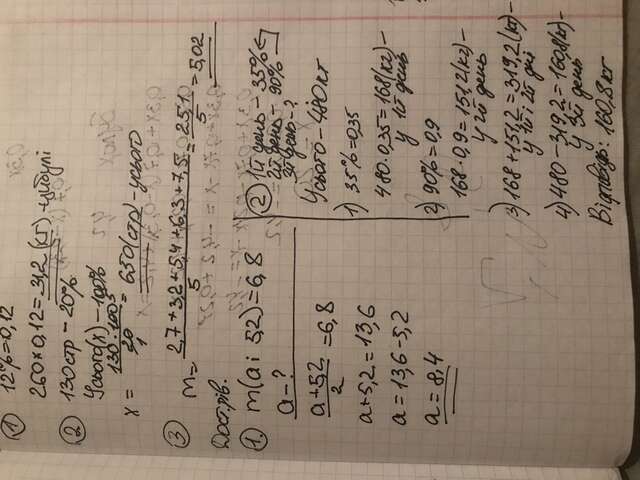 ① 12%=0,12
260×0,12=31,2 (кг) - цибулі
② 130стр - 20%
Усього(х) - 100%
х = 130·100⁵ / 20₁ = 650(стр) - усього
③ m = 2,7+3,2+5,4+6,3+7,5 / 5 = 25,1 / 5 = 5,02
Дост.рів.
①. m(a і 5,2)=6,8
a-?
a+5,2 / 2 = 6,8
a+5,2=13,6
a=13,6-5,2
a=8,4
② 1й день - 35%
2й день - 90%
3й день - ?
Усього - 480кг
1) 35%=0,35
480·0,35=168(кг)-
у 1й день
2) 90%=0,9
168·0,9=151,2(кг)-
у 2й день
3) 168+151,2=319,2(кг)-
у 1й і 2й дні
4) 480-319,2=160,8(кг)-
у 3й день
Відповідь: 160,8кг